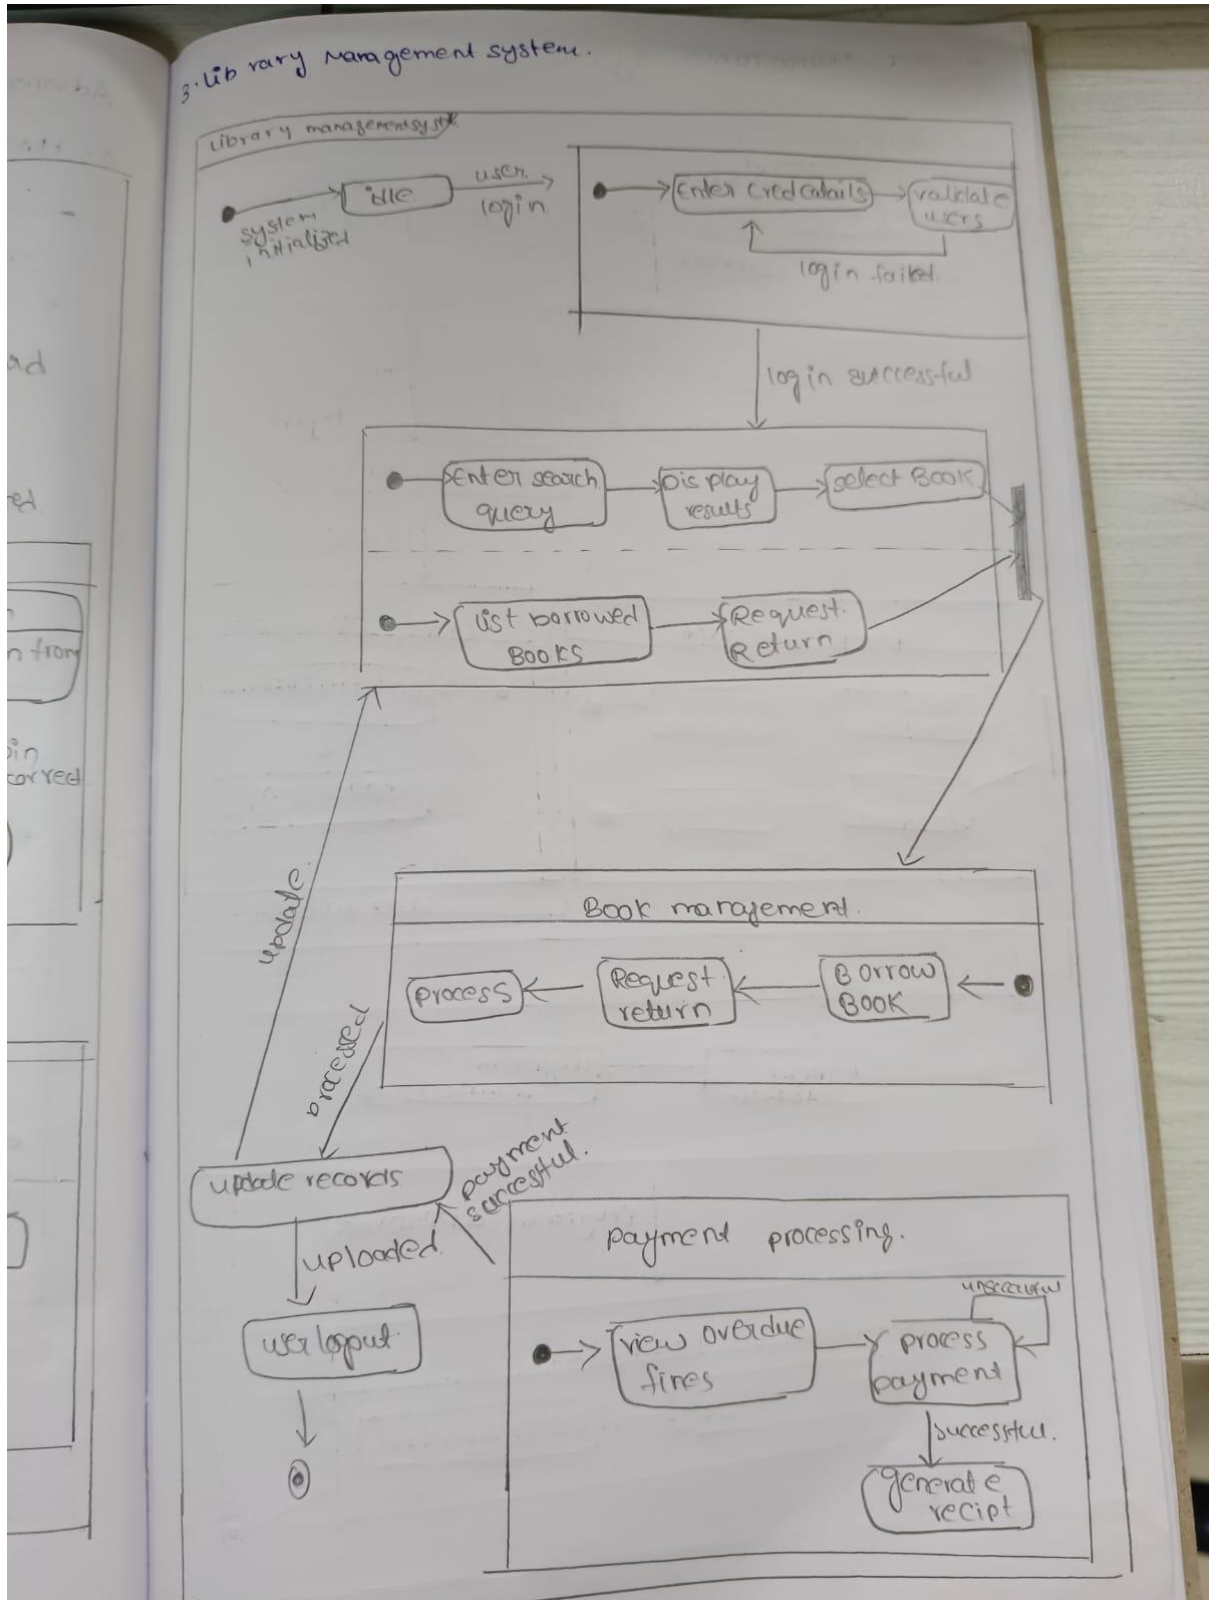 3. Library Management system.
Library managementsyst
idle
user
login
system
initialized
Enter Credeatails
validate
users
login failed
login successful
Enter search
query
Display
results
select Book
List borrowed
BOOKS
Request
Return
update
Book management.
process
Request
return
Borrow
BOOK
processed
update records
payment
successful.
uploaded
user logout
payment processing.
view overdue
fines
process
payment
successful.
generate
recipt
ad
ed
n from
pin
correct